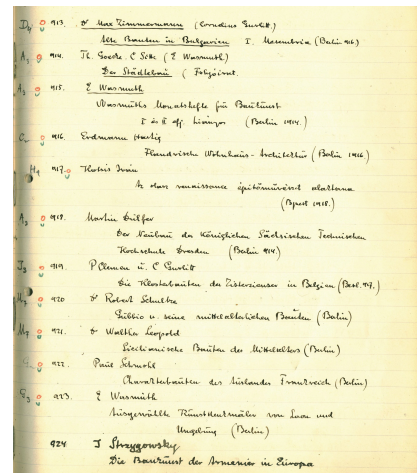 D4 913. Dr Max Zimmermann (Cornelius Gurlitt.)
Alte Bauten in Bulgarien I. Mesembria (Berlin 916.)
A3 914. Th. Goecke. C. Sitte (E Wasmuth)
Der Städtebau ( Folyóirat.
A3 915. E Wasmuth
Wasmuths Monatshefte für Baukunst
I és II évf. hiányos (Berlin 1914.)
916. Erdmann Hartig
Flandrische Wohnhaus-Architektur (Berlin 1916.)
H4 917. Kotsis Iván
Az olasz renaissance építőművészet alaktana
(Bpest 1918.)
A3 918. Martin Dülfer
Der Neubau der Königlichen Sächsischen Technischen
Hochschule Dresden (Berlin 914.)
J3 919. P Clemen u. C Gurlitt
Die Klosterbauten der Zisterzienser in Belgien (Berl. 917.)
M7 920 Dr Robert Schultze
Gubbio u. seine mittelalterlichen Bauten (Berlin)
M7 921. Dr Walther Leopold
Sicilianische Bauten des Mittelalters (Berlin)
922. Paul Schmohl
Charakterbauten des Auslandes Frankreich (Berlin)
E3 923. E Wasmuth
Ausgewählte Kunstdenkmäler von Laon und
Umgebung (Berlin)
924 J Strzygowsky
Die Baukunst der Armenier in Europa